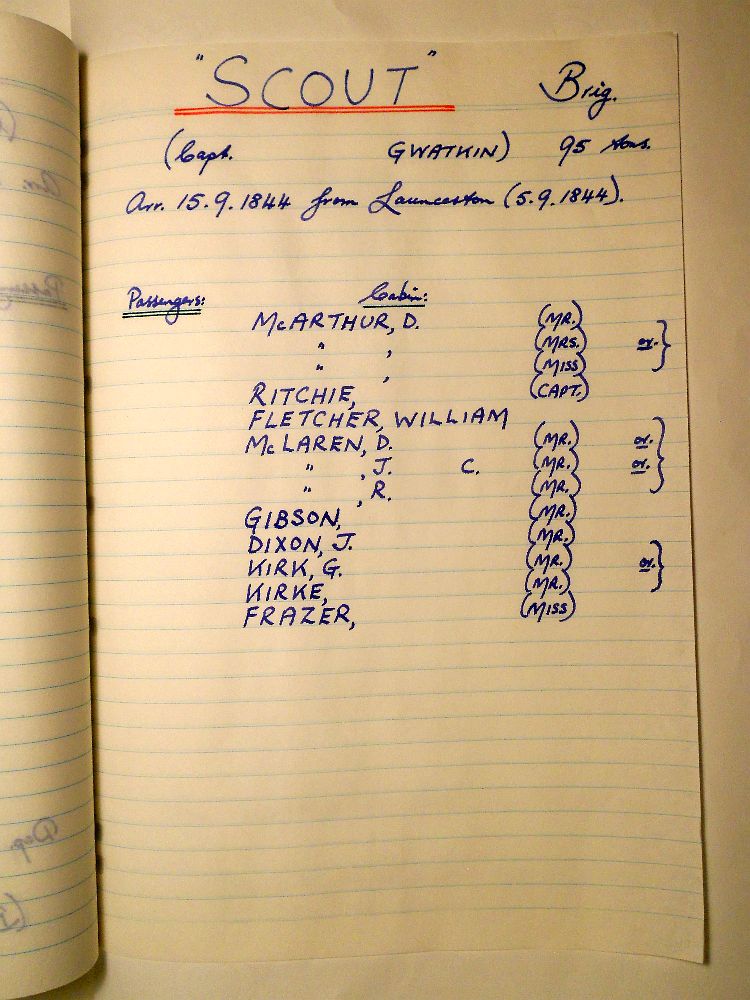 "SCOUT" Brig.
(Capt. GWATKIN) 95 tons.
Arr. 15.9.1844 from Launceston (5.9.1844).
Passengers: Cabin:
McARTHUR, D. (MR.)
" , (MRS. or. }
" , (MISS)
RITCHIE, (CAPT.)
FLETCHER, WILLIAM
McLAREN, D. (MR.) or. }
" , J. C. (MR.) or.
" , R. (MR.)
GIBSON, (MR.)
DIXON, J. (MR.)
KIRK, G. (MR.) or. }
KIRKE, (MR.)
FRAZER, (MISS)